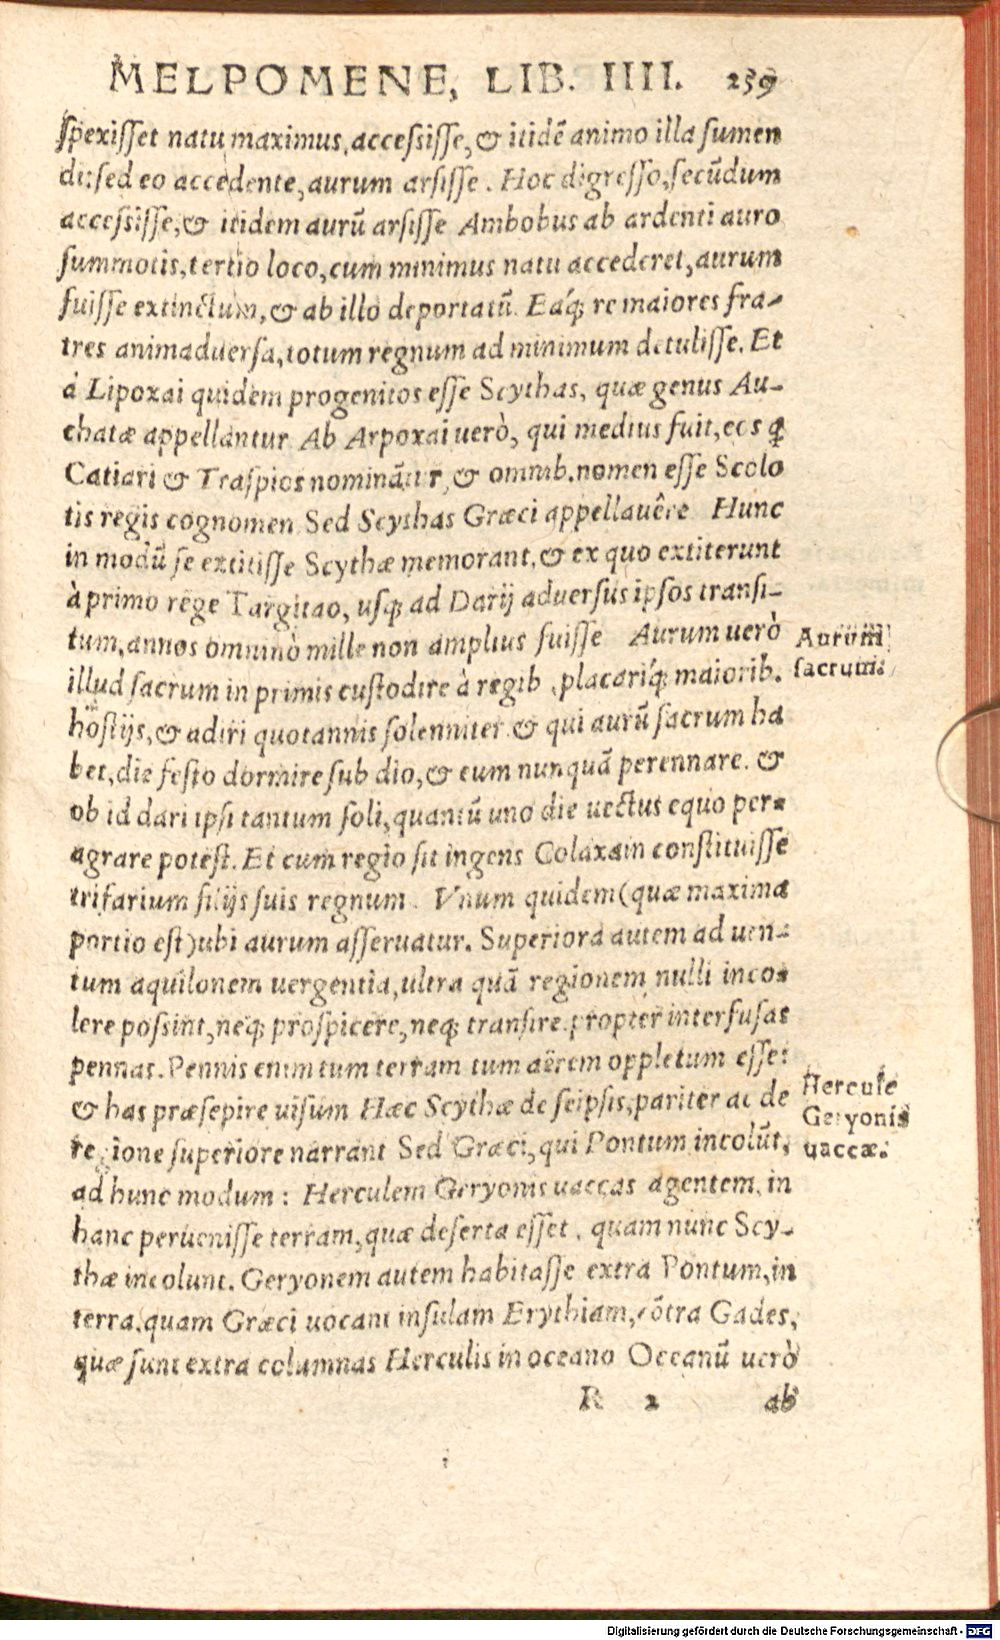 MELPOMENE, LIB. IIII. 259
spexisset natu maximus, accessisse, & itidē animo illa sumen
di: sed eo accedente, aurum arsisse. Hoc digresso, secūdum
accessisse, & itidem aurū arsisse Ambobus ab ardenti auro
summotis, tertio loco, cum minimus natu accederet, aurum
fuisse extinctum, & ab illo deportatū. Eáq; re maiores fra-
tres animaduersa, totum regnum ad minimum detulisse. Et
à Lipoxai quidem progenitos esse Scythas, quæ genus Au-
chatæ appellantur Ab Arpoxai uerò, qui medius fuit, eos q
Catiari & Traspies nominātur, & omnib. nomen esse Scolo
tis regis cognomen Sed Scythas Græci appellauêre Hunc
in modū se extitisse Scythæ memorant, & ex quo extiterunt
à primo rege Targitao, usq; ad Darij aduersus ipsos transi-
tum, annos omninò mille non amplius fuisse Aurum uerò
illud sacrum in primis custodire à regib, placaríq; maiorib.
hostijs, & adiri quotannis solenniter & qui aurū sacrum ha
bet, die festo dormire sub dio, & eum nunquā perennare. &
ob id dari ipsi tantum soli, quantū uno die uectus equo per-
agrare potest. Et cum regio sit ingens Colaxain constituisse
trifarium filijs suis regnum. Vnum quidem (quæ maxima
portio est) ubi aurum asseruatur. Superiora autem ad uen-
tum aquilonem uergentia, ultra quā regionem nulli inco-
lere possint, neq; prospicere, neq; transire propter interfusas
pennas. Pennis enim tum terram tum aërem oppletum esse:
& has præsepire uisum Hæc Scythæ de seipsis, pariter ac de
regione superiore narrant Sed Græci, qui Pontum incolūt,
ad hunc modum: Herculem Geryonis uaccas agentem, in
hanc peruenisse terram, quæ deserta esset, quam nunc Scy-
thæ incolunt. Geryonem autem habitasse extra Pontum, in
terra, quam Græci uocant insulam Erythiam, cōtra Gades,
quæ sunt extra columnas Herculis in oceano Oceanū uerò
R 2 ab
Aurum
sacrum.
Hercule
Geryonis
uaccæ.
Digitalisierung gefördert durch die Deutsche Forschungsgemeinschaft - DFG